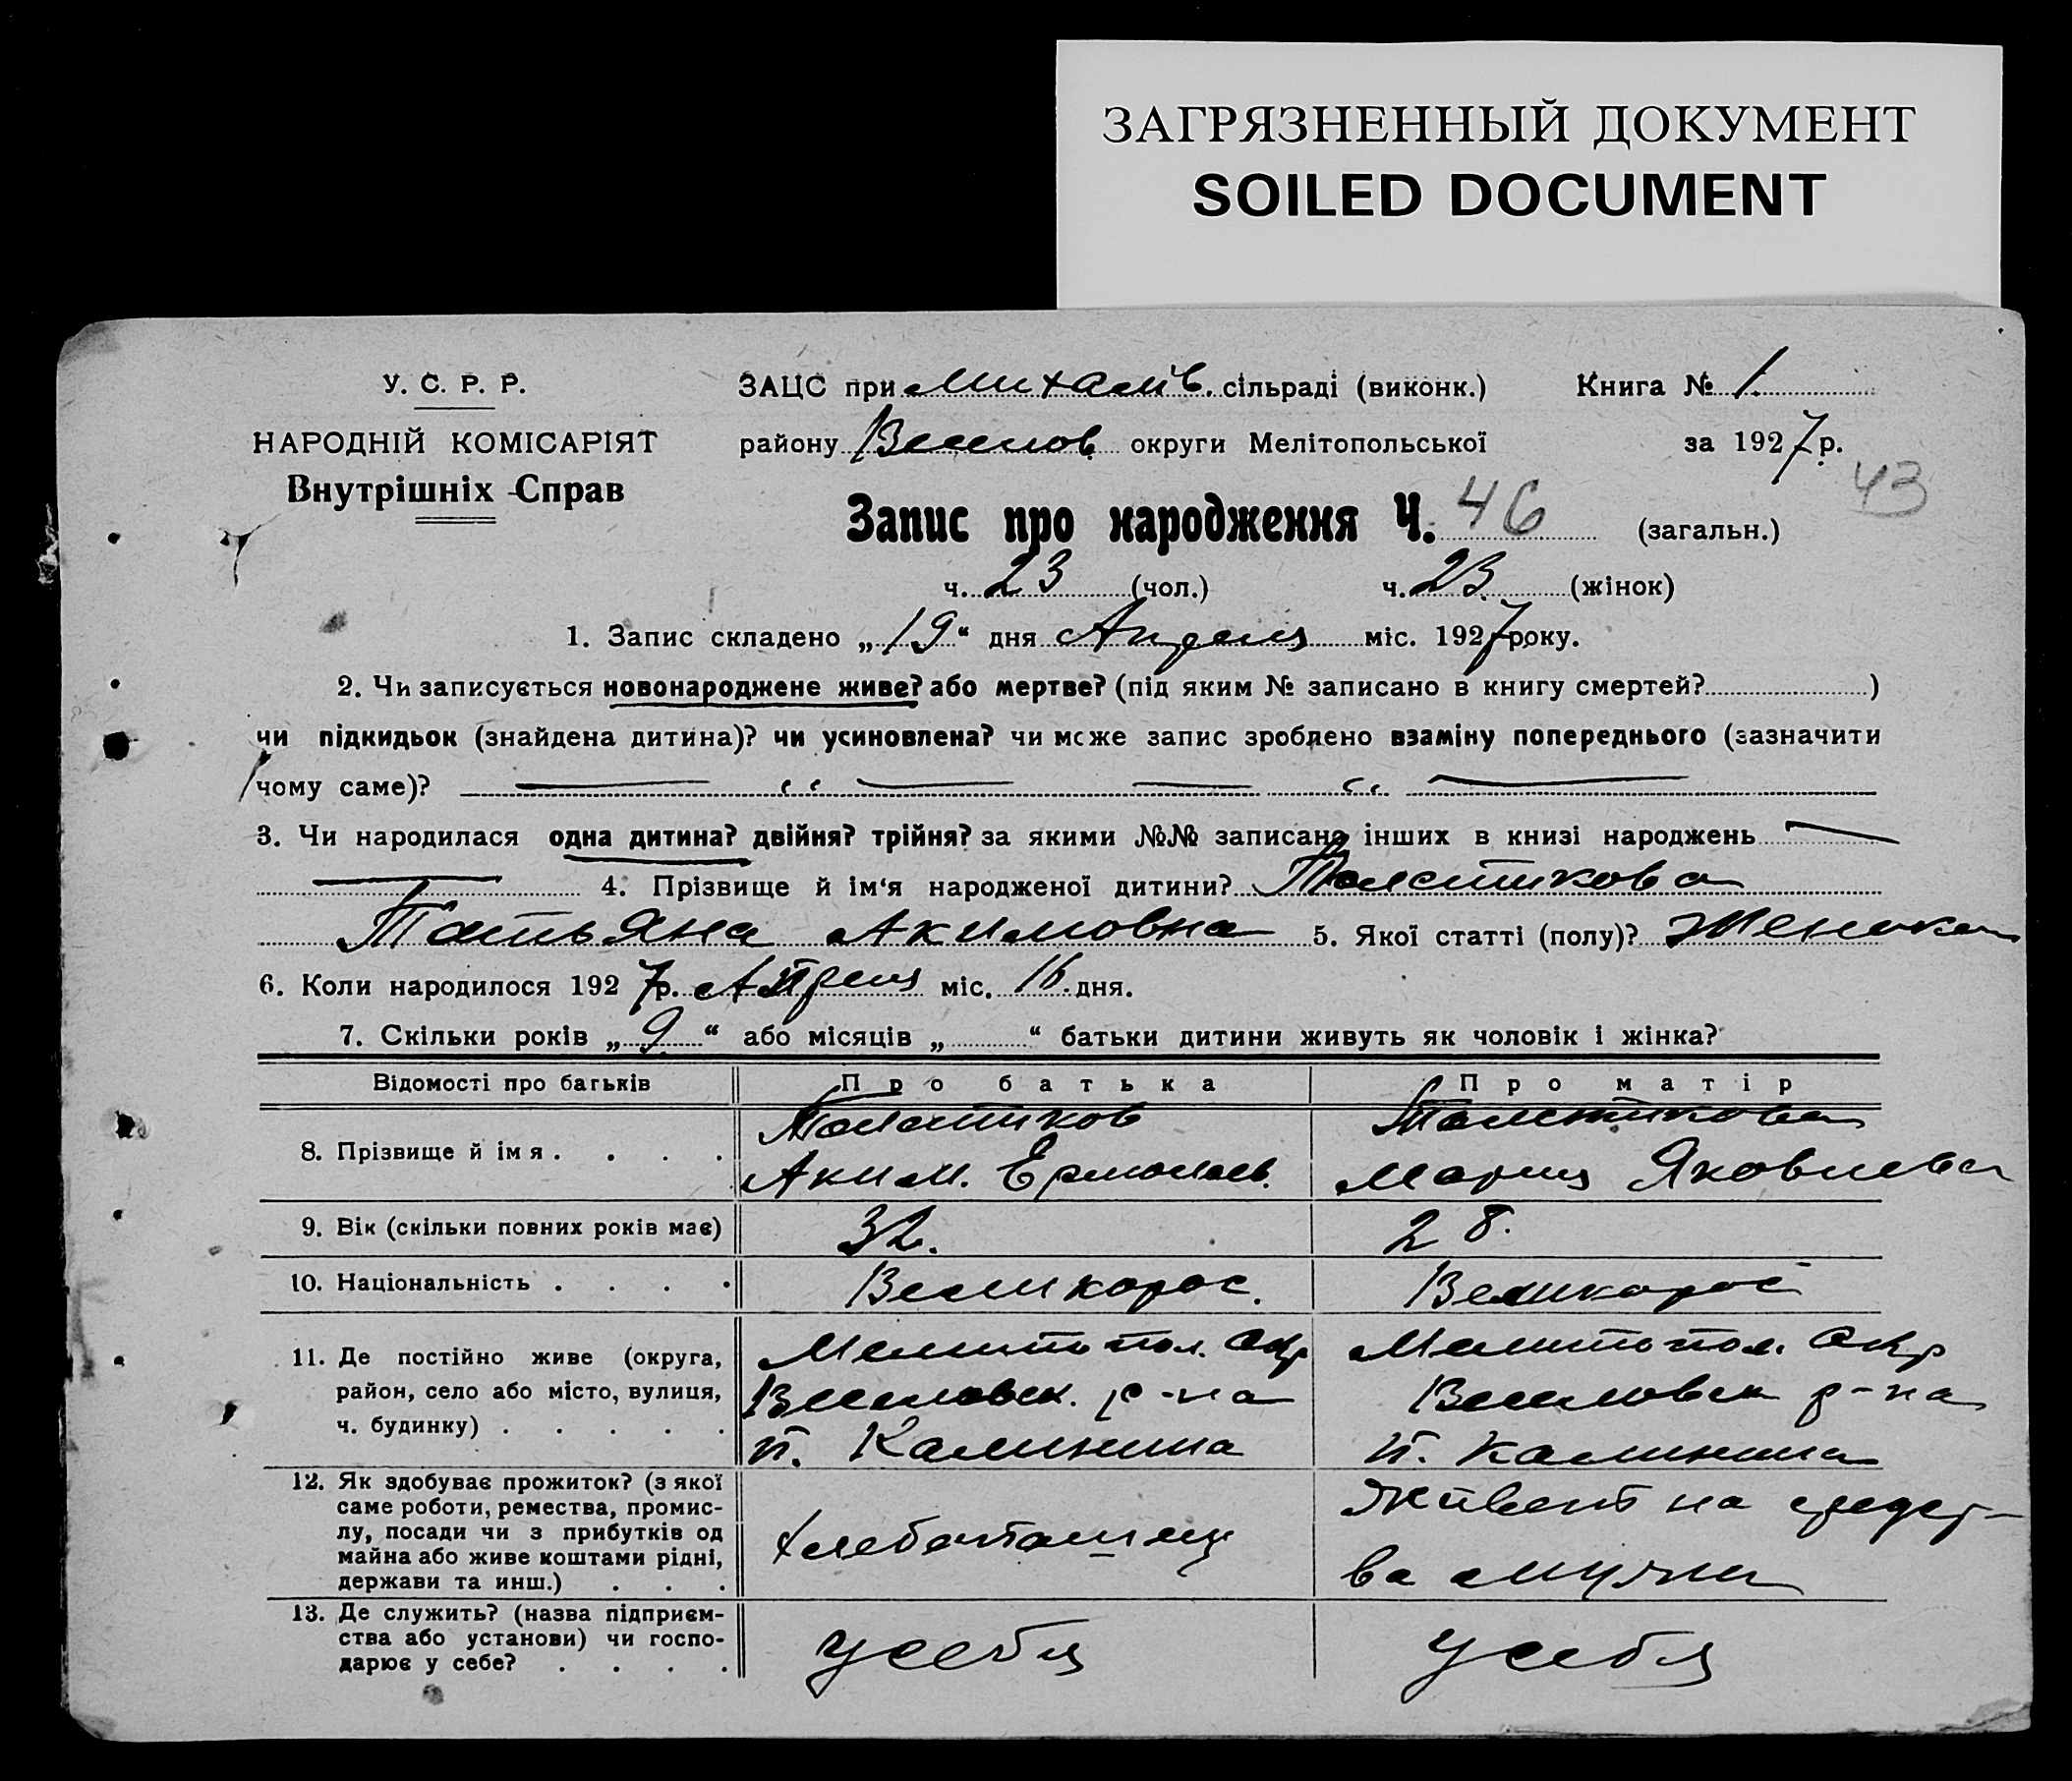 ЗАГРЯЗНЕННЫЙ ДОКУМЕНТ
SOILED DOCUMENT
У. С. Р. Р.
НАРОДНІЙ КОМІСАРІЯТ
Внутрішніх Справ
ЗАЦС при Михайлів. сільраді (виконк.) Книга № 1.
району Веселов. округи Мелітопольської за 1927 р.
43
Запис про народження Ч. 46 (загальн.)
ч. 23 (чол.) ч. 23. (жінок)
1. Запис складено „19“ дня Апреля міс. 1927 року.
2. Чи записується новонароджене живе? або мертве? (під яким № записано в книгу смертей? )
чи підкидьок (знайдена дитина)? чи усиновлена? чи може запис зроблено взаміну попереднього (зазначити
чому саме)?
3. Чи народилася одна дитина? двійня? трійня? за якими №№ записано інших в книзі народжень
4. Прізвище й ім‘я народженої дитини? Толстикова
Татьяна Акимовна 5. Якої статті (полу)? Женска
6. Коли народилося 1927 р. Апреля міс. 16. дня.
7. Скільки років „9“ або місяців „ “ батьки дитини живуть як чоловік і жінка?
Відомості про батьків Про батька Про матір
8. Прізвище й імя . . . . Толстиков Толстикова
Аким. Ермолаев. Мария Яковлева
9. Вік (скільки повних років має) 32. 28.
10. Національність . . . . Великорос. Великорос
11. Де постійно живе (округа, Мелитопол. Окр Мелитопол. Окр
район, село або місто, вулиця, Веселовск. р-на Веселовск р-на
ч. будинку) . . . . . п. Калинина п. Калинина
12. Як здобуває прожиток? (з якої
саме роботи, ремества, промис-
лу, посади чи з прибутків од
майна або живе коштами рідні,
держави та инш.) . . . хлебопашец Живет на средст-
ва мужа
13. Де служить? (назва підприєм-
ства або установи) чи госпо-
дарює у себе? . . . . у себя у себя